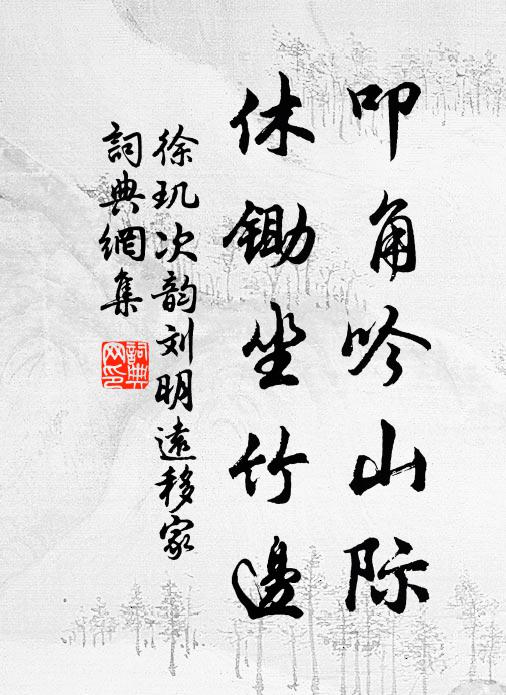 叩角吟山际
休锄坐竹邊
徐玑次韵刘明遠移家
詞典網集
詞典网印